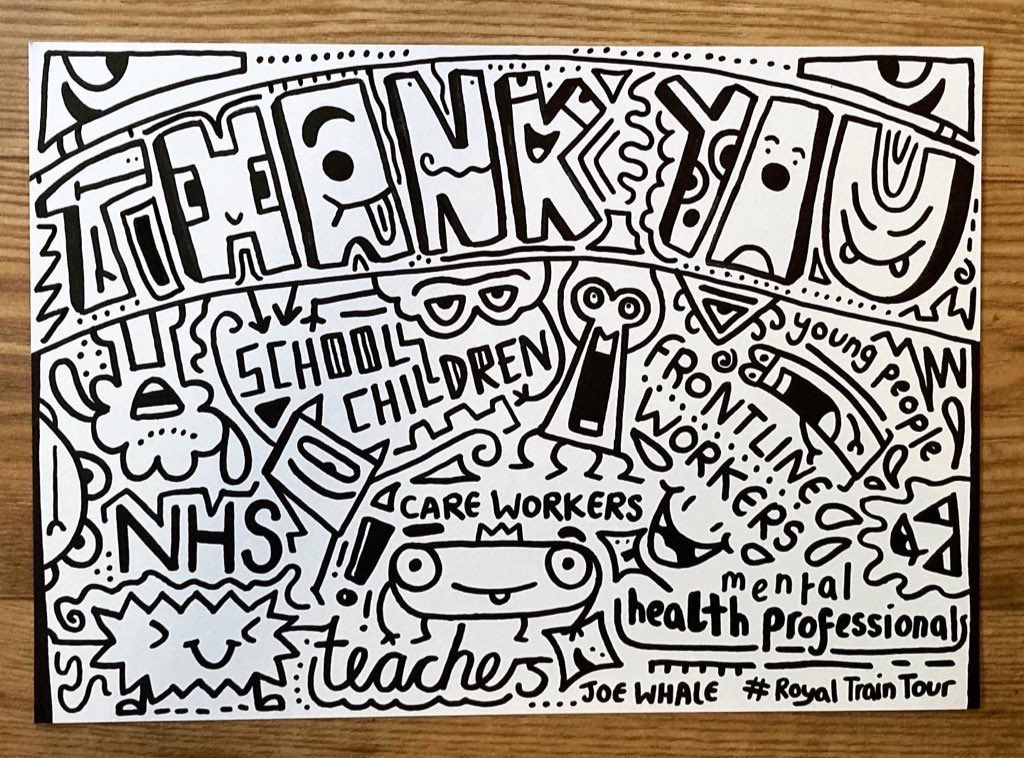 THANK YOU
SCHOOL
CHILDREN
young people
FRONTLINE
WORKERS
CARE WORKERS
NHS
mental
health professionals
teachers
JOE WHALE #Royal Train Tour